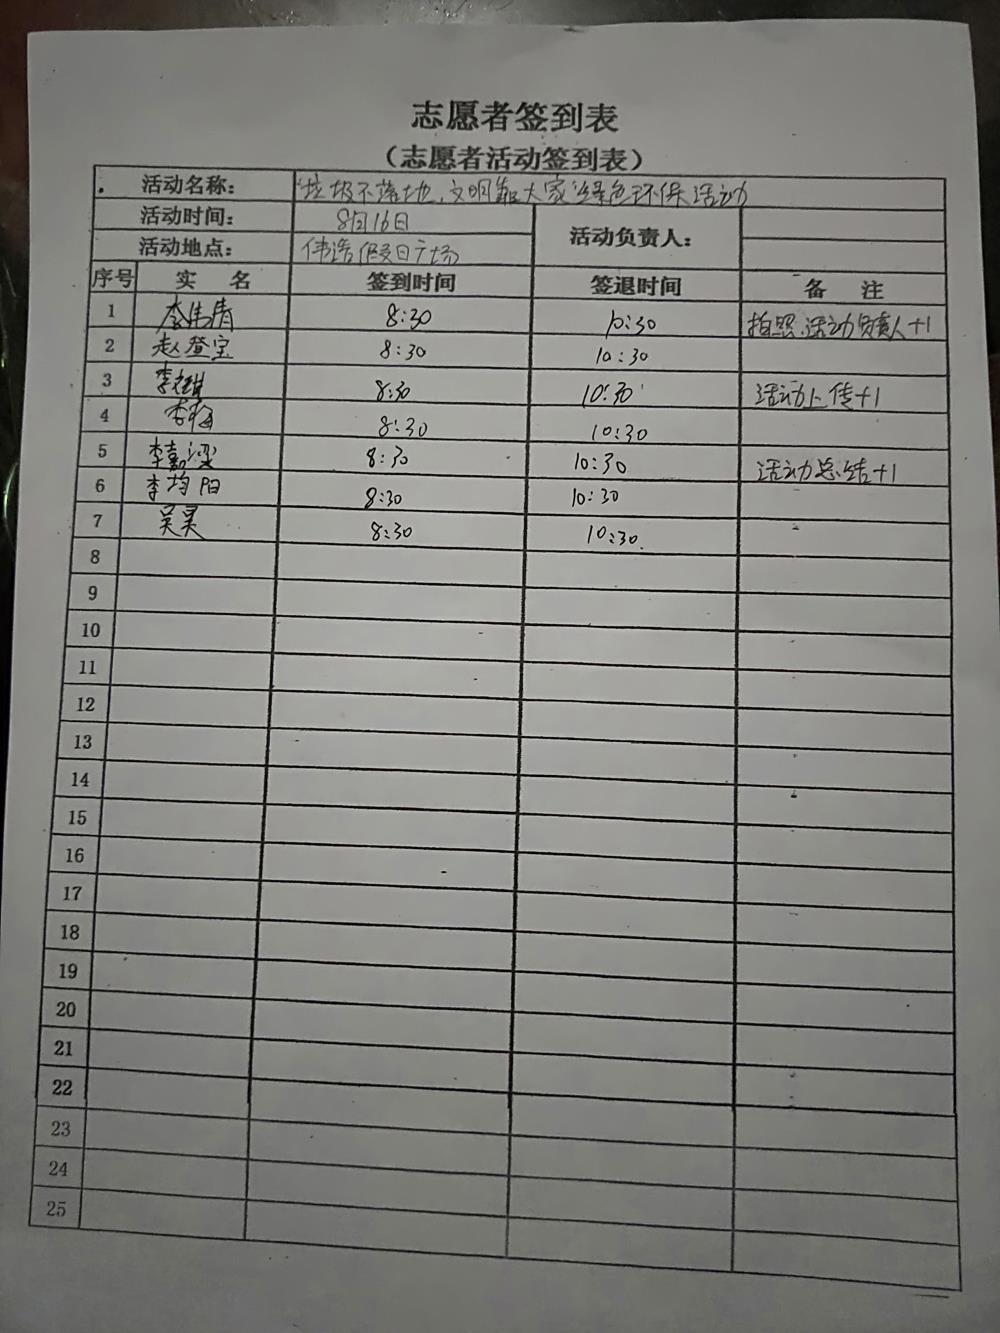 志愿者签到表
（志愿者活动签到表）
活动名称： "垃圾不落地，文明靠大家"绿色环保活动
活动时间： 8月16日 活动负责人：
活动地点： 伟浩假日广场
序号 实 名 签到时间 签退时间 备 注
1 李伟倩 8:30 10:30 拍照、活动负责人+1
2 赵登宝 8:30 10:30
3 李 8:30 10:30 活动上传+1
4 李梅 8:30 10:30
5 李嘉梁 8:30 10:30 活动总结+1
6 李均阳 8:30 10:30
7 吴昊 8:30 10:30
8
9
10
11
12
13
14
15
16
17
18
19
20
21
22
23
24
25